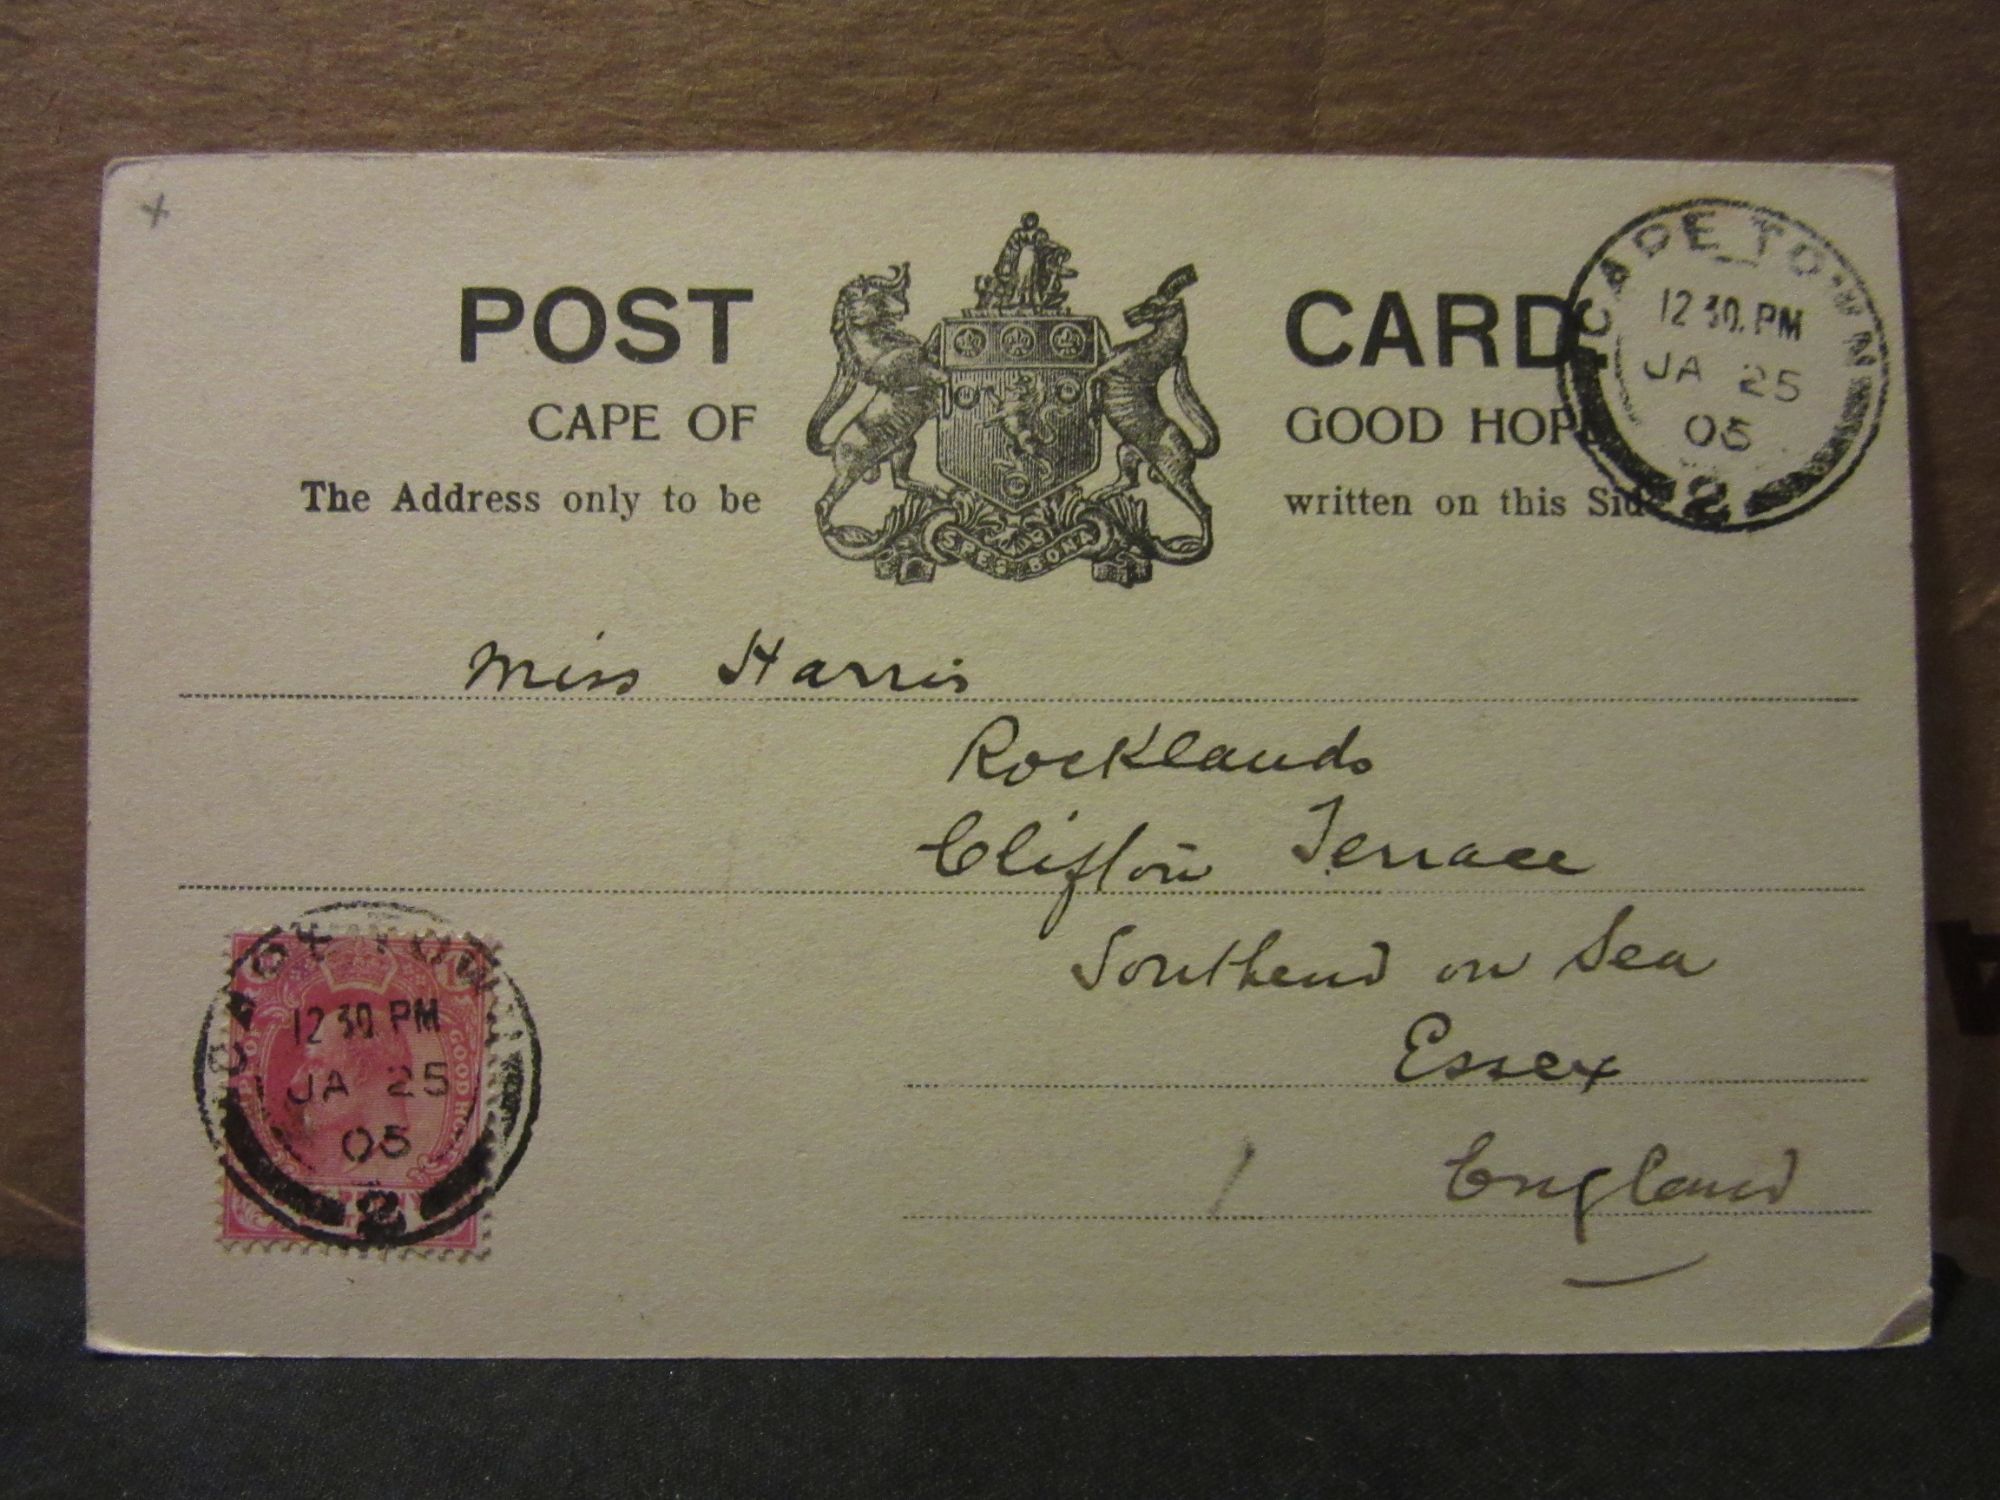 POST CARD.
CAPE OF GOOD HOPE
The Address only to be written on this Side
SPES BONA
CAPE TOWN
12 30. PM
JA 25
05
2
Miss Harris
Rocklands
Clifton Terrace
Southend on Sea
Essex
England
CAPE TOWN
12 30. PM
JA 25
05
2
GOOD HO